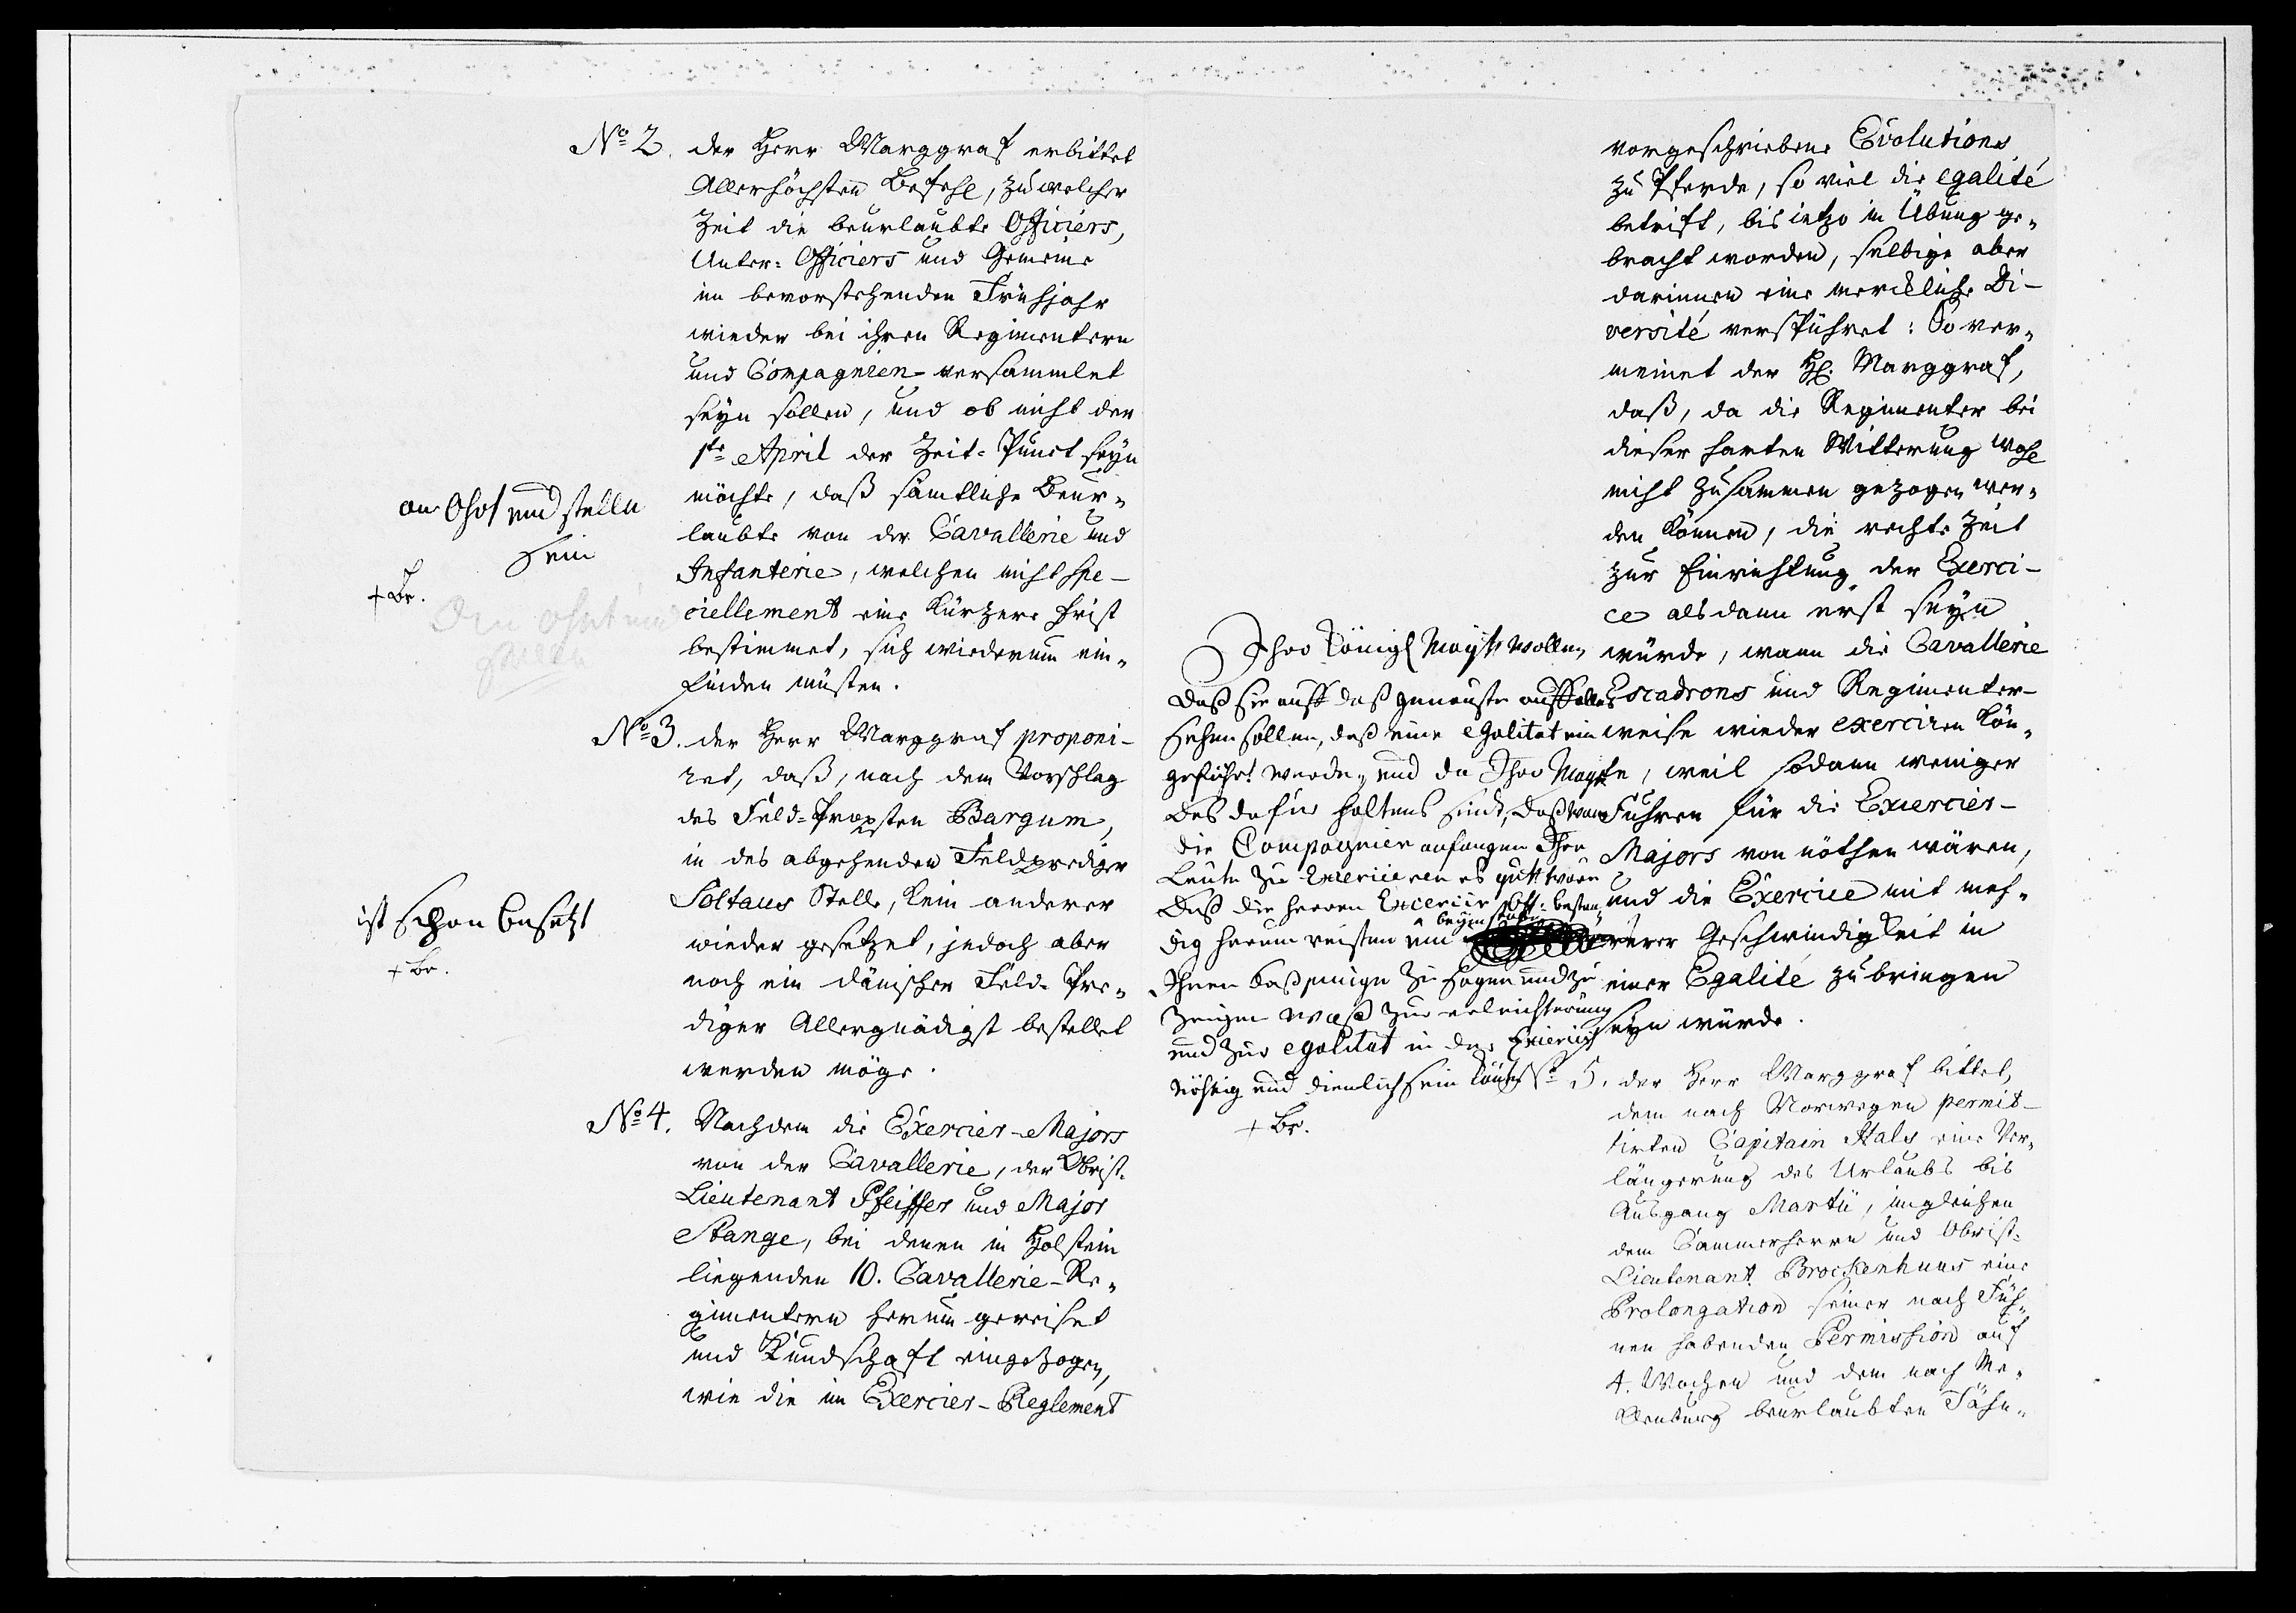 No 2. der Herr Marggraf erbittet
Allerhöchsten Befehl, zu welcher
Zeit die beurlaubte Officiers,
Unter-Officiers und Gemeine
im bevorstehenden Frühjahr
wieder bei ihren Regimentern
und Compagnien versammlet
seyn sollen, und ob nicht der
1te April der Zeit-Punct seyn
möchte, daß sämtliche Beur-
laubte von der Cavallerie und
Infanterie, welchen nicht spe-
ciellement eine kürzere Frist
bestimmet, sich wiederum ein-
finden müsten.
an Ohrt und stelle
sein
+ Br.
An ohrt und
stelle
No 3. der Herr Marggraf proponi-
ret, daß, nach dem Vorschlag
des Feld-Propsten Bargum,
in des abgehenden Feldprediger
Soltaus Stelle, kein anderer
wieder gesetzet, jedoch aber
noch ein dänischer Feld-Pre-
diger Allergnädigst bestellet
werden möge.
ist schon besetzt
+ Br.
No 4. Nachdem die Exercier-Majors
von der Cavallerie, der Obrist-
Lieutenant Pfeiffer und Major
Stange, bei denen in Holstein
liegenden 10. Cavallerie-Re-
gimentern herum gereiset
und Kundschaft eingezogen,
wie die im Exercier-Reglement
vorgeschriebene Evolutions
zu Pferde, so viel die egalité
betrift, bis ietzo in Übung ge-
bracht worden, selbige aber
darinnen eine merckliche Di-
versité verspühret: So ver-
meinet der H. Marggraf,
daß, da die Regimenter bei
dieser harten Witterung wohl
nicht zusammen gezogen wer-
den können, die rechte Zeit
zur Einrichtung der Exerci-
ce alsdann erst seyn
würde, wann die Cavallerie
Escadrons und Regimenter-
weise wieder exerciren kön-
te, weil sodann weniger
Fuhren für die Exercier-
Majors von nöthen wären,
und die Exercice mit meh-
rerer Geschwindigkeit in
einer Egalité zu bringen
seyn würde.
Ihro Königl Mayst wollen
daß sie auff daß genauste auff alles
sehen sollen, daß eine egalitat ein
geführt werde, und da Ihro Mayst
des dafür haltens sindt, daß wan
die Compagnien anfangen Ihre
Leute zu exerciceren es gutt wäre
daß die Herren Exercier Off: bestän-
beym stabe
dig herum reisten um
Ihnen daßjenige zu sagen und zu
zeigen waß zur erleichterung
und zur egalitat in der Exercice
nöhtig und dienlich sein könte
+ Br.
No 5. der Herr Marggraf bittet,
dem nach Norwegen permit-
tirten Capitain Hals eine Ver-
längerung des Urlaubs bis
Ausgang Martii, imgleichen
dem Cammerherrn und Obrist-
Lieutenant Brockenhuus eine
Prolongation seiner nach Füh-
nen habenden Permission auf
4. Wochen und dem nach Me-
klenburg beurlaubten Fähn-